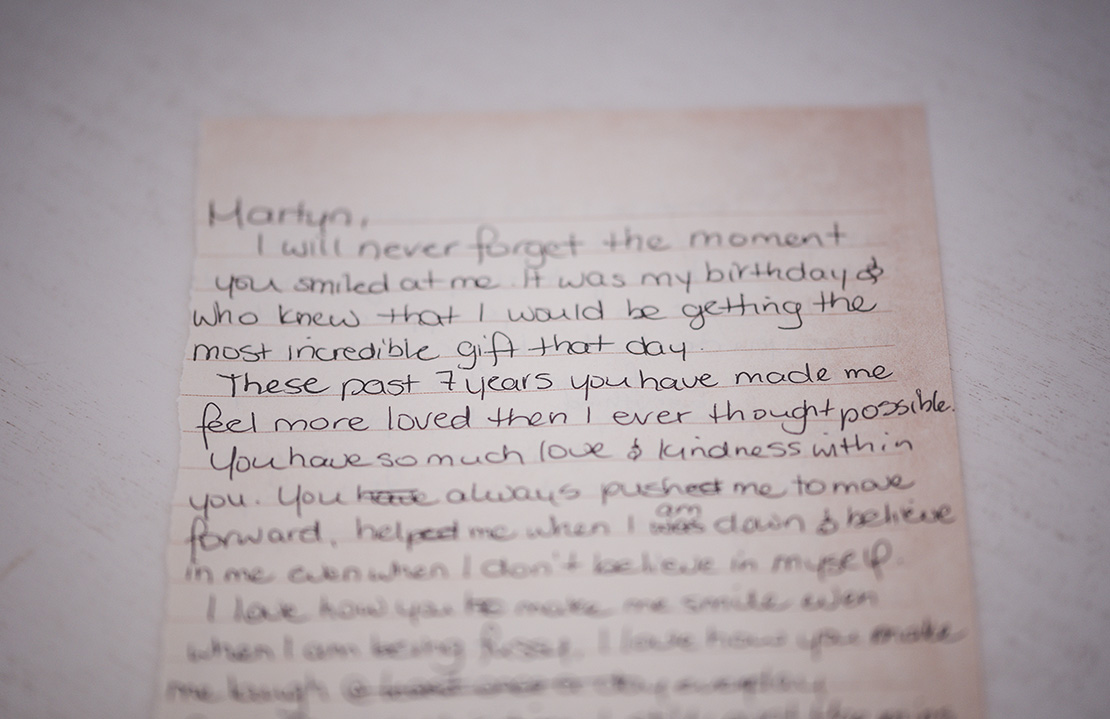 Martyn,
I will never forget the moment
you smiled at me. It was my birthday &
who knew that I would be getting the
most incredible gift that day.
These past 7 years you have made me
feel more loved then I ever thought possible.
You have so much love & kindness within
you. You have always pushed me to move
forward, helped me when I was am down & believe
in me even when I don't believe in myself.
I love how you make me smile even
when I am being fussy. I love how you make
me laugh